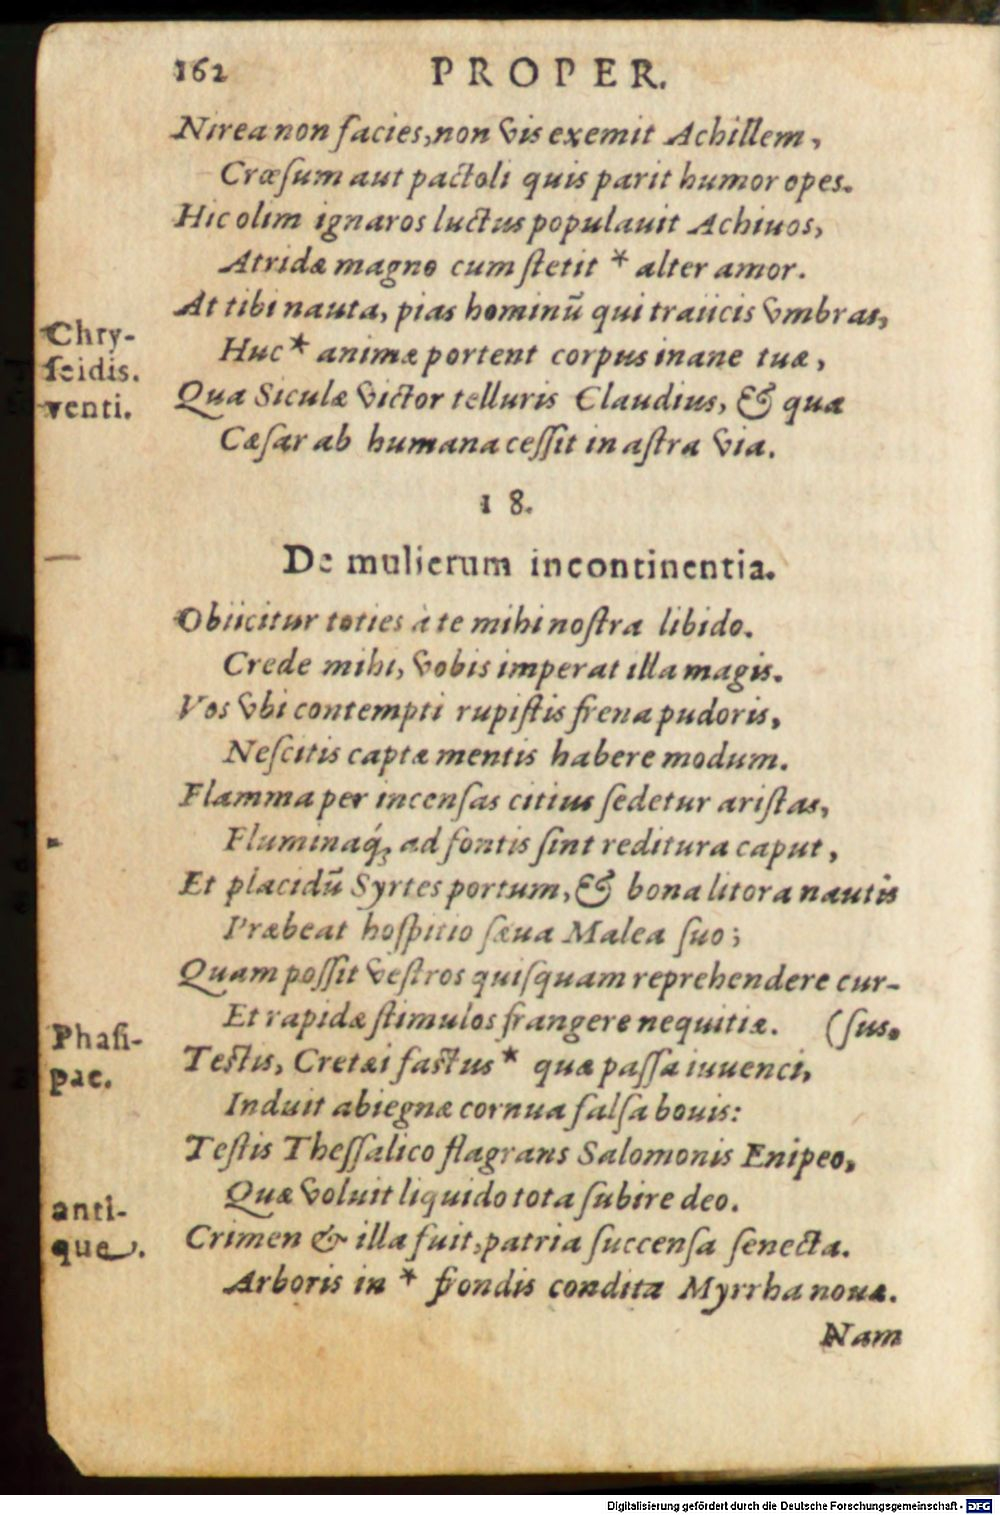 162 PROPER.
Nirea non facies, non vis exemit Achillem,
Crœſum aut pactoli quis parit humor opes.
Hic olim ignaros luctus populauit Achiuos,
Atridæ magno cum ſtetit * alter amor.
At tibi nauta, pias hominū qui traiicis vmbras,
Chry-
Huc * animæ portent corpus inane tuæ,
ſeidis.
Qua Siculæ victor telluris Claudius, & qua
venti.
Cæſar ab humana ceſſit in aſtra via.
18.
De mulierum incontinentia.
Obiicitur toties à te mihi noſtra libido.
Crede mihi, vobis imperat illa magis.
Vos vbi contempti rupiſtis frena pudoris,
Neſcitis captæ mentis habere modum.
Flamma per incenſas citius ſedetur ariſtas,
Fluminaq́; ad fontis ſint reditura caput,
Et placidū Syrtes portum, & bona litora nautis
Præbeat hoſpitio ſæua Malea ſuo;
Quam poſſit veſtros quiſquam reprehendere cur-
Et rapidæ ſtimulos frangere nequitiæ. (ſus.
Phaſi-
Teſtis, Cretæi faſtus * quæ paſſa iuuenci,
pae.
Induit abiegnæ cornua falſa bouis:
Teſtis Theſſalico flagrans Salomonis Enipeo,
Quæ voluit liquido tota ſubire deo.
anti-
Crimen & illa fuit, patria ſuccenſa ſenecta.
que.
Arboris in * frondis condita Myrrha nouæ.
Nam
Digitalisierung gefördert durch die Deutsche Forschungsgemeinschaft - DFG